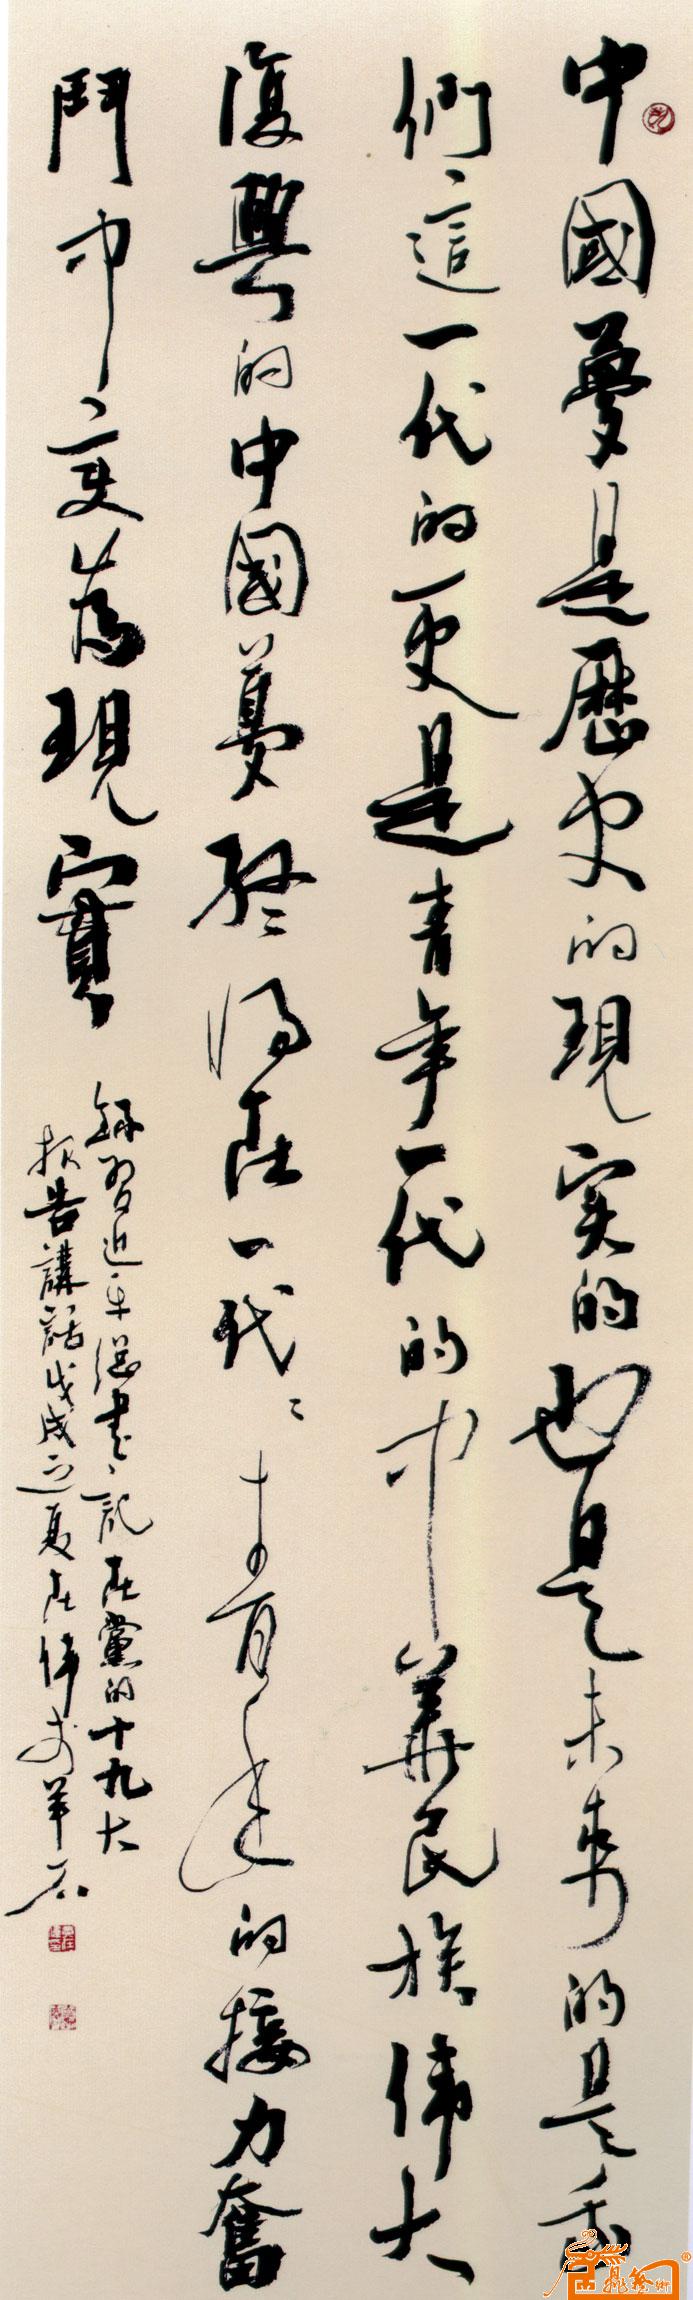 中國夢是歷史的現实的也是未來的是我
們這一代的更是青年一代的中華民族偉大
復興的中國夢終將在一代代青年的接力奮
鬥中變為現實
錄習近平總書記在黨的十九大
报告講話戊戌之夏在偉於羊石